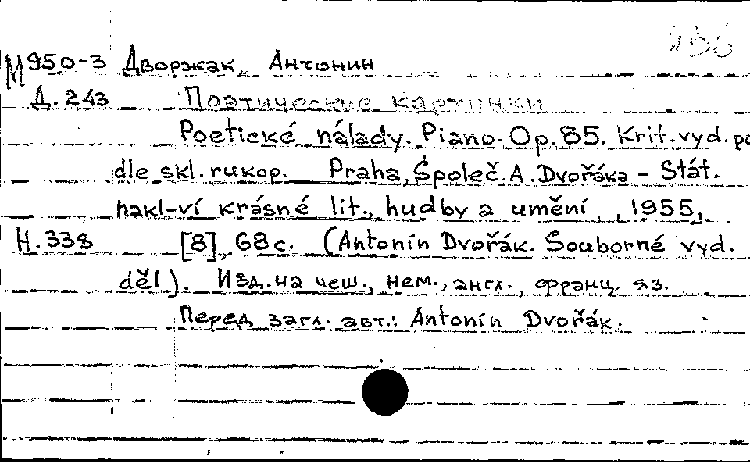 М950-3 Дворжак, Антонин
Д.243 Поэтические картинки
Poetické nálady. Piano. Op.85. Krit. vyd. po
dle skl. rukop. Praha, Společ. A. Dvořáka – Stát.
nakl-ví krásné lit., hudby a umění, 1955,
Н.338 [8], 68 с. (Antonín Dvořák. Souborné vyd.
děl). Изд. на чеш., нем., англ., франц. яз.
Перед загл. авт.: Antonín Dvořák.